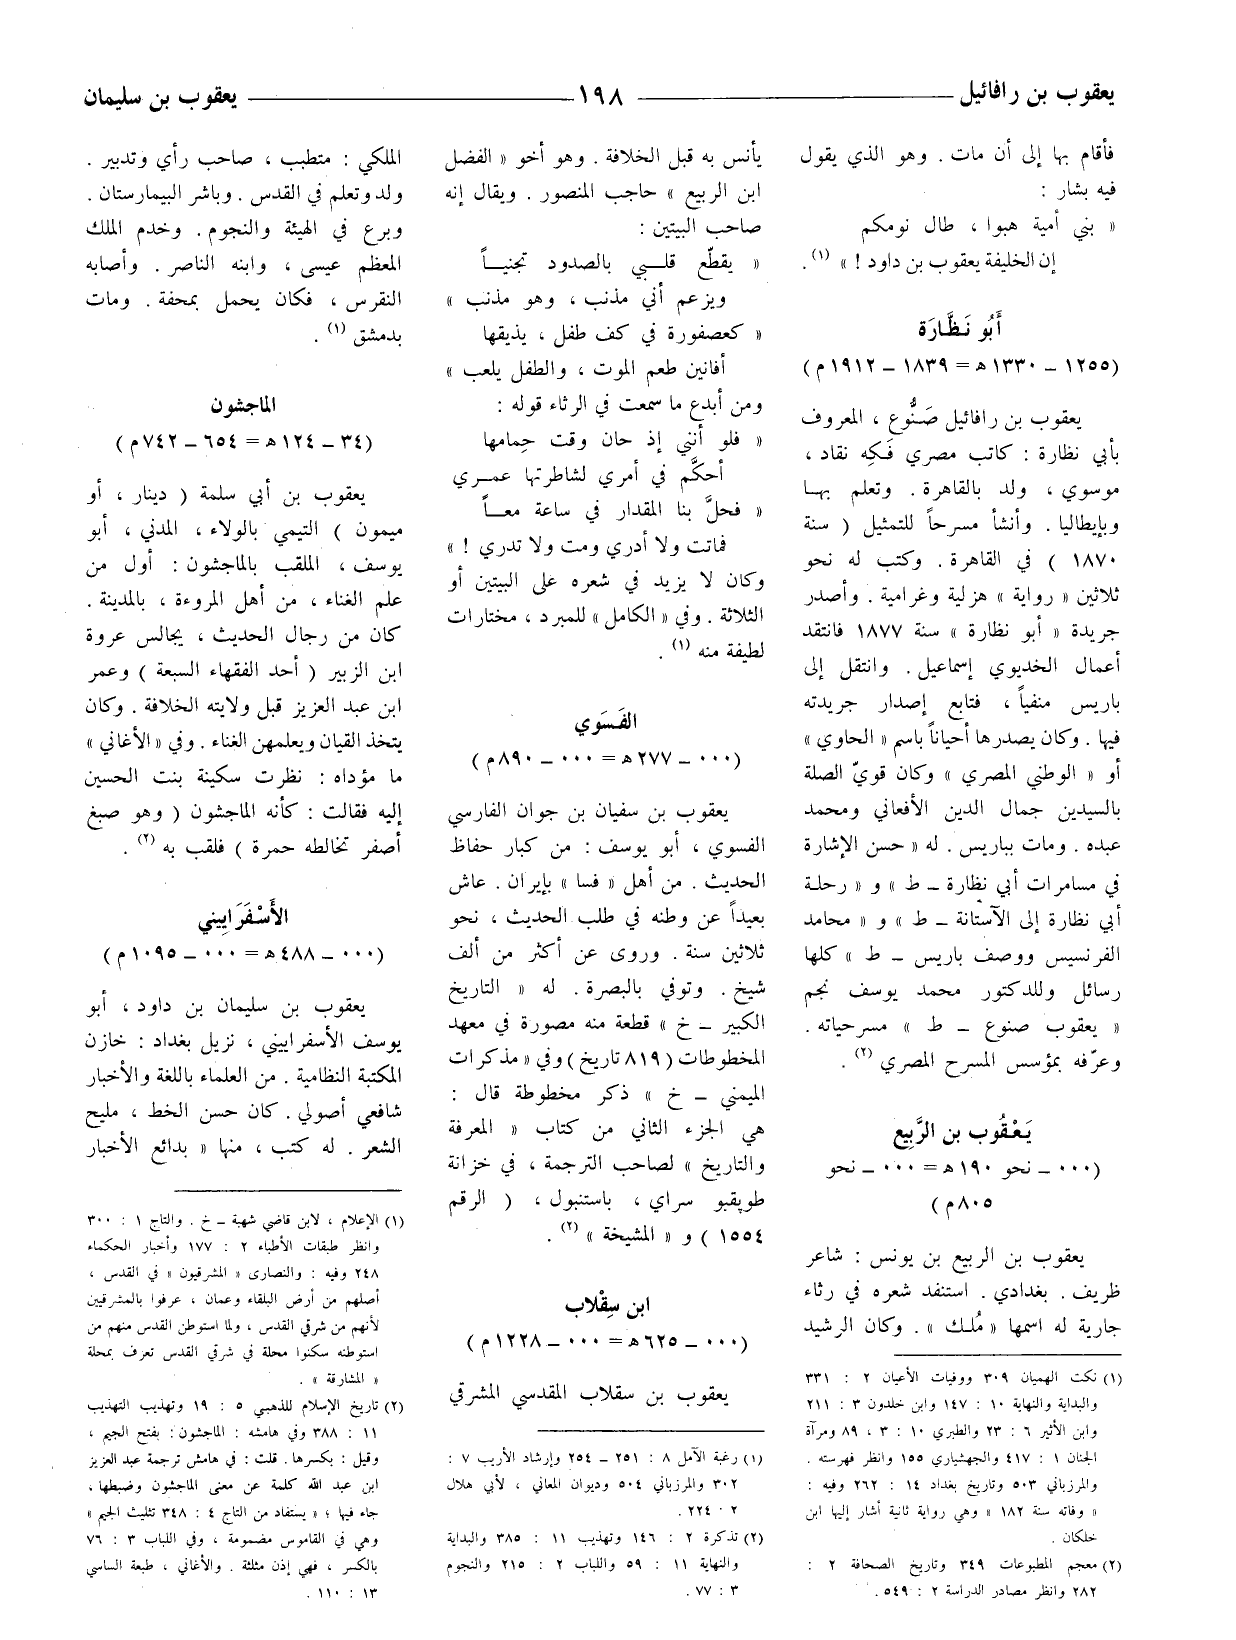 يعقوب بن رافائيل ــــــ ١٩٨ ــــــ يعقوب بن سليمان
فأقام بها إلى أن مات . وهو الذي يقول
فيه بشار :
« بني أمية هبوا ، طال نومكم
إن الخليفة يعقوب بن داود ! » (١).
أَبُو نَظَّارَة
(١٢٥٥ ــ ١٣٣٠ ه = ١٨٣٩ ــ ١٩١٢ م)
يعقوب بن رافائيل صَنُّوع ، المعروف
بأبي نظارة : كاتب مصري فَكِه نقاد ،
موسوي ، ولد بالقاهرة . وتعلم بهـا
وبإيطاليا . وأنشأ مسرحاً للتمثيل ( سنة
١٨٧٠ ) في القاهرة . وكتب له نحو
ثلاثين « رواية » هزلية وغرامية . وأصدر
جريدة « أبو نظارة » سنة ١٨٧٧ فانتقد
أعمال الخديوي إسماعيل . وانتقل إلى
باريس منفياً ، فتابع إصدار جريدته
فيها . وكان يصدرها أحياناً باسم « الحاوي »
أو « الوطني المصري » وكان قويّ الصلة
بالسيدين جمال الدين الأفغاني ومحمد
عبده . ومات بباريس . له « حسن الإشارة
في مسامرات أبي نظارة ــ ط » و « رحلـة
أبي نظارة إلى الآستانة ــ ط » و « محامد
الفرنسيس ووصف باريس ــ ط » كلها
رسائل وللدكتور محمد يوسف نجم
« يعقوب صنوع ــ ط » مسرحياته .
وعرّفه بمؤسس المسرح المصري (٢) .
يَعْقُوب بن الرَّبِيع
(٠٠٠ ــ نحو ١٩٠ ه = ٠٠٠ ــ نحو
٨٠٥ م)
يعقوب بن الربيع بن يونس : شاعر
ظريف . بغدادي . استنفد شعره في رثاء
جارية له اسمها « مُلك » . وكان الرشيد
(١) نكت الهميان ٣٠٩ ووفيات الأعيان ٢ : ٣٣١
والبداية والنهاية ١٠ : ١٤٧ وابن خلدون ٣ : ٢١١
وابن الأثير ٦ : ٢٣ والطبري ١٠ : ٣ ، ٨٩ ومرآة
الجنان ١ : ٤١٧ والجهشياري ١٥٥ وانظر فهرسته .
والمرزباني ٥٠٣ وتاريخ بغداد ١٤ : ٢٦٢ وفيه :
« وفاته سنة ١٨٢ » وهي رواية ثانية أشار إليها ابن
خلكان .
(٢) معجم المطبوعات ٣٤٩ وتاريخ الصحافة ٢ :
٢٨٢ وانظر مصادر الدراسة ٢ : ٥٤٩ .
يأنس به قبل الخلافة . وهو أخو « الفضل
ابن الربيع » حاجب المنصور . ويقال إنه
صاحب البيتين :
« يقطّع قلـــبي بالصدود تجنيـــاً
ويزعم أني مذنب ، وهو مذنب »
« كعصفورة في كف طفل ، يذيقها
أفانين طعم الموت ، والطفل يلعب »
ومن أبدع ما سمعت في الرثاء قوله :
« فلو أنني إذ حان وقت حِمامها
أحكَّم في أمري لشاطرتها عمـــري
« فحلَّ بنا المقدار في ساعة معـــاً
فماتت ولا أدري ومت ولا تدري ! »
وكان لا يزيد في شعره على البيتين أو
الثلاثة . وفي « الكامل » للمبرد ، مختارات
لطيفة منه (١) .
الفَسَوي
(٠٠٠ ــ ٢٧٧ ه = ٠٠٠ ــ ٨٩٠ م)
يعقوب بن سفيان بن جوان الفارسي
الفسوي ، أبو يوسف : من كبار حفاظ
الحديث . من أهل « فسا » بإيران . عاش
بعيداً عن وطنه في طلب الحديث ، نحو
ثلاثين سنة . وروى عن أكثر من ألف
شيخ . وتوفي بالبصرة . له « التاريخ
الكبير ــ خ » قطعة منه مصورة في معهد
المخطوطات ( ٨١٩ تاريخ ) وفي « مذكرات
الميمني ــ خ » ذكر مخطوطة قال :
هي الجزء الثاني من كتاب « المعرفة
والتاريخ » لصاحب الترجمة ، في خزانة
طوپقبو سراي ، باستنبول ، ( الرقم
١٥٥٤ ) و « المشيخة » (٢) .
ابن سِقْلاب
(٠٠٠ ــ ٦٢٥ ه = ٠٠٠ ــ ١٢٢٨ م)
يعقوب بن سقلاب المقدسي المشرقي
(١) رغبة الآمل ٨ : ٢٥١ ــ ٢٥٤ وإرشاد الأريب ٧ :
٣٠٢ والمرزباني ٥٠٤ وديوان المعاني ، لأبي هلال
٢ · ٢٢٤ .
(٢) تذكرة ٢ : ١٤٦ وتهذيب ١١ : ٣٨٥ والبداية
والنهاية ١١ : ٥٩ واللباب ٢ : ٢١٥ والنجوم
٣ : ٧٧ .
الملكي : متطبب ، صاحب رأي وتدبير .
ولد وتعلم في القدس . وباشر البيمارستان .
وبرع في الهيئة والنجوم . وخدم الملك
المعظم عيسى ، وابنه الناصر . وأصابه
النقرس ، فكان يحمل بمحفة . ومات
بدمشق (١) .
الماجشون
(٣٤ ــ ١٢٤ ه = ٦٥٤ ــ ٧٤٢ م)
يعقوب بن أبي سلمة ( دينار ، أو
ميمون ) التيمي بالولاء ، المدني ، أبو
يوسف ، الملقب بالماجشون : أول من
علم الغناء ، من أهل المروءة ، بالمدينة .
كان من رجال الحديث ، يجالس عروة
ابن الزبير ( أحد الفقهاء السبعة ) وعمر
ابن عبد العزيز قبل ولايته الخلافة . وكان
يتخذ القيان ويعلمهن الغناء . وفي « الأغاني »
ما مؤداه : نظرت سكينة بنت الحسين
إليه فقالت : كأنه الماجشون ( وهو صبغ
أصفر تخالطه حمرة ) فلقب به (٢) .
الأَسْفَرَاييني
(٠٠٠ ــ ٤٨٨ ه = ٠٠٠ ــ ١٠٩٥ م)
يعقوب بن سليمان بن داود ، أبو
يوسف الأسفراييني ، نزيل بغداد : خازن
المكتبة النظامية . من العلماء باللغة والأخبار
شافعي أصولي . كان حسن الخط ، مليح
الشعر . له كتب ، منها « بدائع الأخبار
(١) الإعلام ، لابن قاضي شهبة ــ خ . والتاج ١ : ٣٠٠
وانظر طبقات الأطباء ٢ : ١٧٧ وأخبار الحكماء
٢٤٨ وفيه : والنصارى « المشرقيون » في القدس ،
أصلهم من أرض البلقاء وعمان ، عرفوا بالمشرقيين
لأنهم من شرقي القدس ، ولما استوطن القدس منهم من
استوطنه سكنوا محلة في شرقي القدس تعرف بمحلة
« المشارقة » .
(٢) تاريخ الإسلام للذهبي ٥ : ١٩ وتهذيب التهذيب
١١ : ٣٨٨ وفي هامشه : الماجشون : بفتح الجيم ،
وقيل : بكسرها . قلت : في هامش ترجمة عبد العزيز
ابن عبد الله كلمة عن معنى الماجشون وضبطها ،
جاء فيها : « يستفاد من التاج ٤ : ٣٤٨ تثليث الجيم »
وهي في القاموس مضمومة ، وفي اللباب ٣ : ٧٦
بالكسر ، فهي إذن مثلثة . والأغاني ، طبعة الساسي
١٣ : ١١٠ .